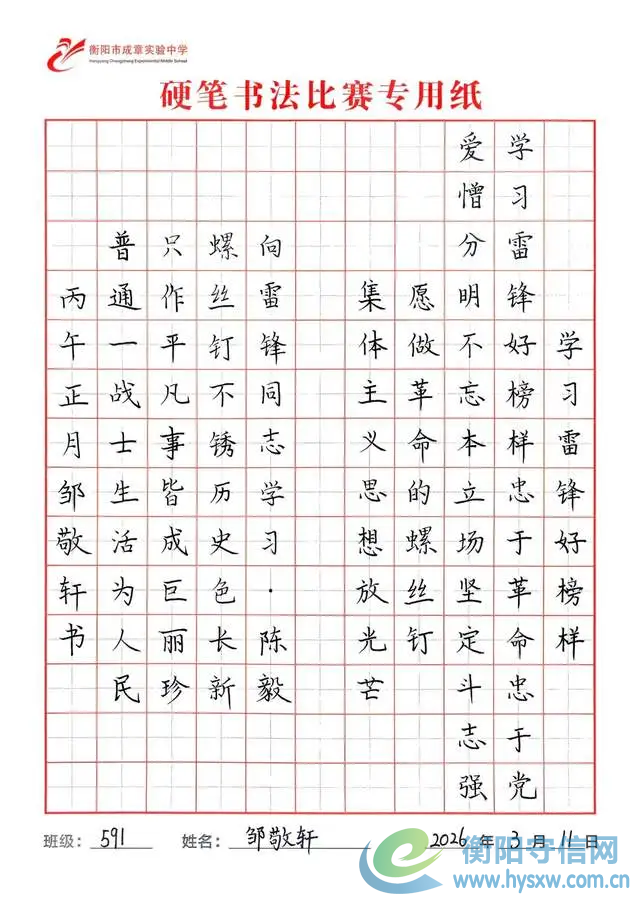 衡阳市成章实验中学
Hengyang Chengzhang Experimental Middle School
硬笔书法比赛专用纸
学习雷锋好榜样
学习雷锋好榜样忠于革命忠于党
爱憎分明不忘本立场坚定斗志强
愿做革命的螺丝钉
集体主义思想放光芒
向雷锋同志学习·陈毅
螺丝钉不锈历史色长新
只作平凡事皆成巨丽珍
普通一战士生活为人民
丙午正月邹敬轩书
班级：591 姓名：邹敬轩 2026年3月11日
衡阳守信网
www.hysxw.com.cn